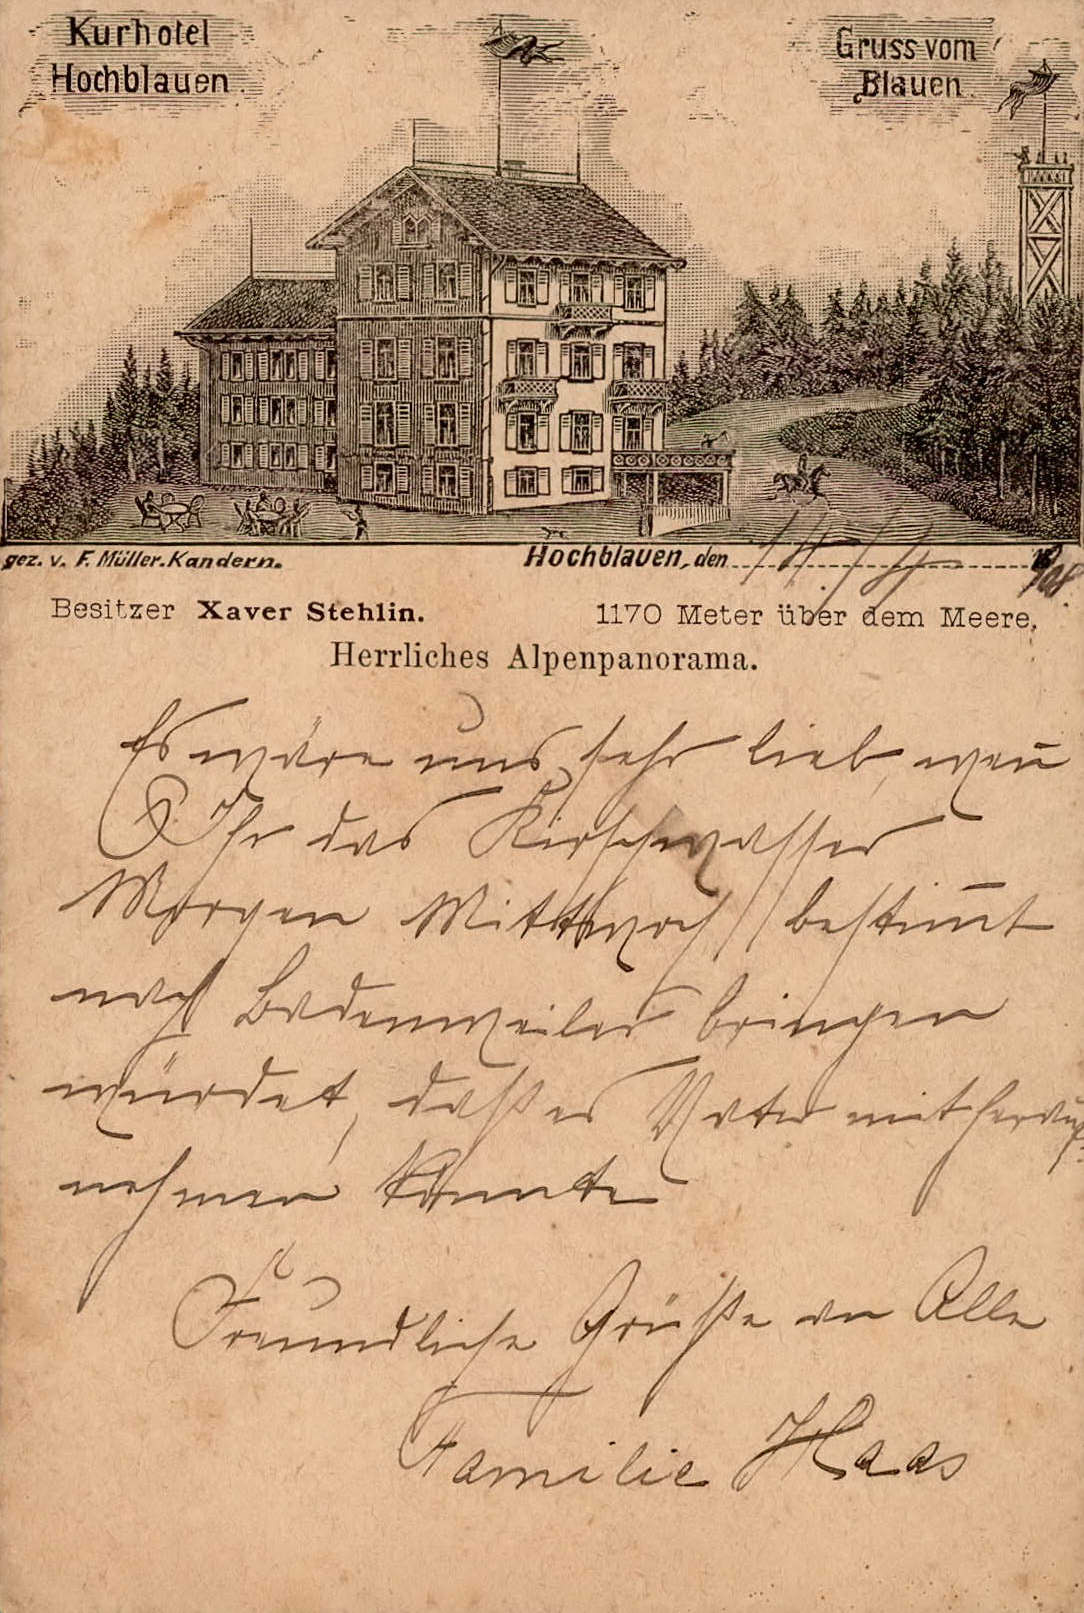 Kurhotel
Hochblauen
Gruss vom
Blauen.
gez. v. F. Müller.Kandern.
Hochblauen, den 14./4. 1908.
Besitzer Xaver Stehlin.
1170 Meter über dem Meere,
Herrliches Alpenpanorama.
Es wäre uns sehr lieb, wen̄
Ihr das Kirschwasser
Morgen Mittwoch bestim̄t
nach Badenweiler bringen
würdet, daß es Vater mit herauf-
nehmen könnte
Freundliche Grüße an Alle
Familie Haas